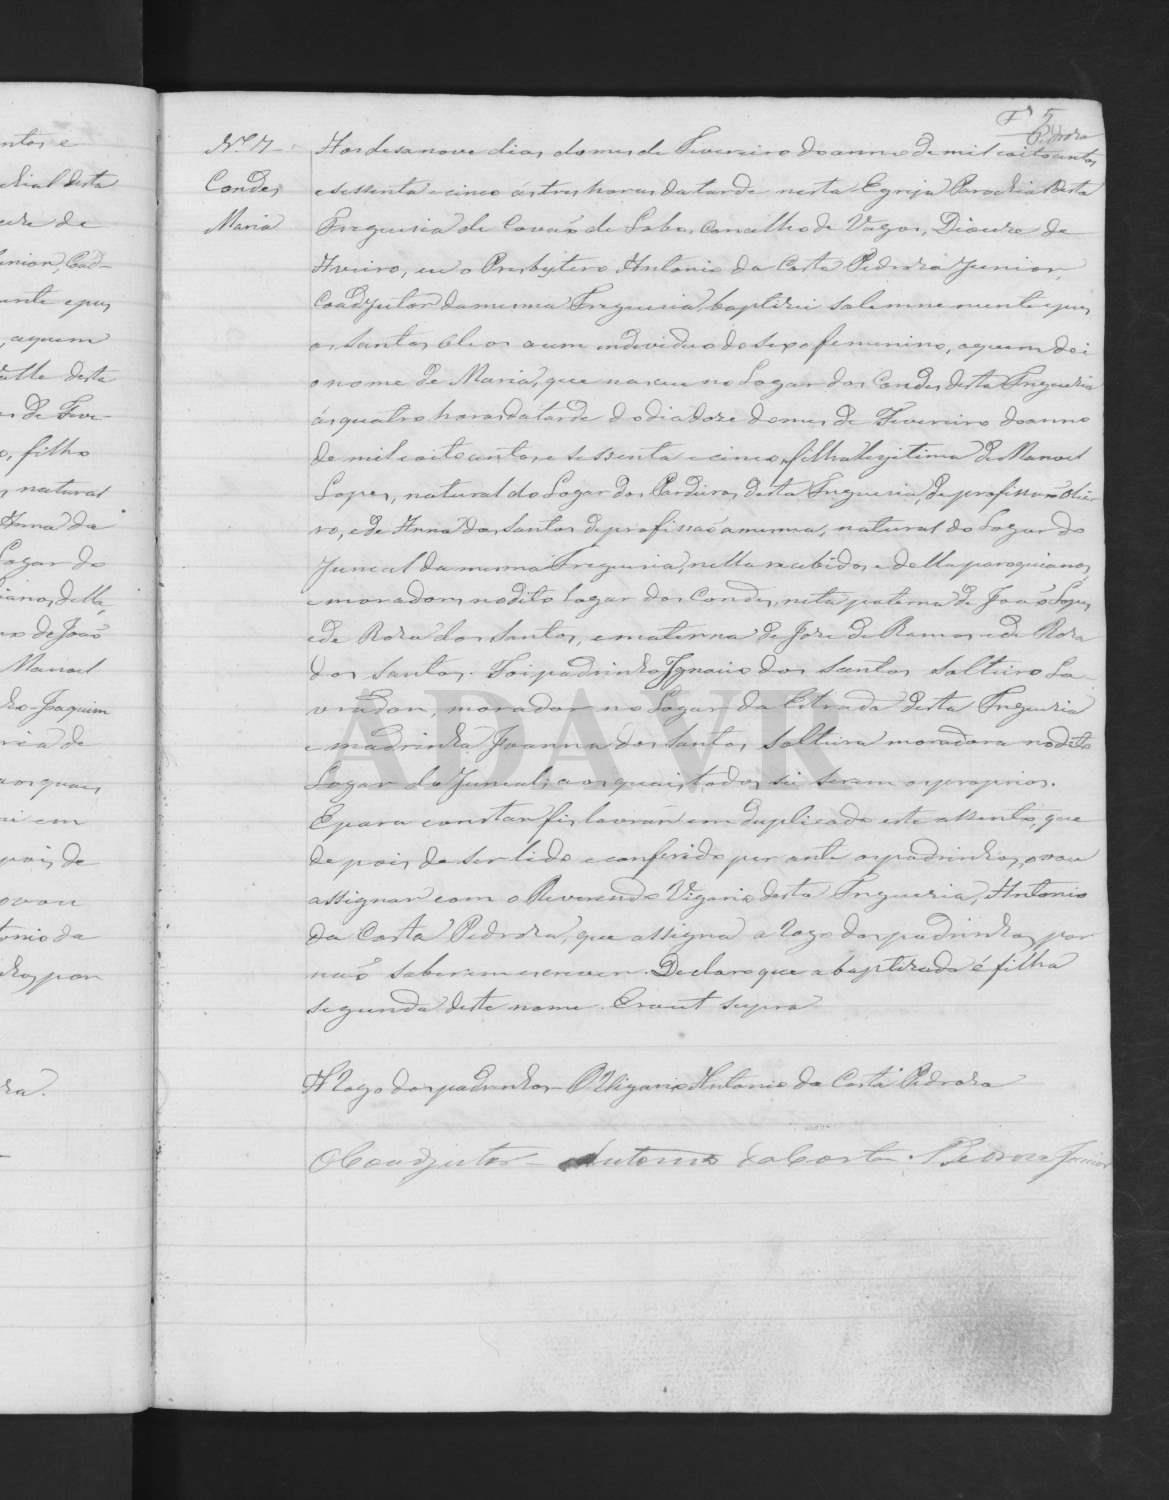 Fª 5
Pedroza
Nº 7
Condes
Maria
Aos desanove dias do mes de Fevereiro do anno de mil oito centos
e sessenta e cinco ás tres horas da tarde nesta Egreja Parochial desta
Freguesia de Covaõ de Lobo, Concelho de Vagos, Diocese de
Aveiro, eu o Presbytero Antonio da Costa Pedroza Junior,
Coadjutor da mesma Freguesia, baptizei solemne mente e pus
os santos Oleos a um individuo do sexo femenino, a quem dei
o nome de Maria, que nasceu no Logar dos Condes desta Freguesia
ás quatro horas da tarde do dia doze do mes de Fevereiro do anno
de mil oito centos e sessenta e cinco, filha legitima de Manoel
Lopes, natural do Logar dos Cardeiros desta Freguesia, de profissaõ Olei-
ro, e de Anna dos Santos de profissaõ a mesma, natural do Logar do
Juncal da mesma Freguesia, nella recebidos e della paroquianos,
e moradores no dito logar dos Condes, neta paterna de Joaõ Lopes,
e de Roza dos Santos, e materna de Joze de Ramos e de Roza
dos Santos. Foi padrinho Ignacio dos Santos solteiro La-
vrador, morador no Logar da Estrada desta Freguesia
e madrinha Joanna dos Santos, solteira moradora no dito
Logar do Juncal; aos quais todos sei serem os proprios.
E para constar fis lavrar em duplicado este assento, que
de pois de ser lido e conferido per ante os padrinhos, o vou
assignar com o Reverendo Vigario desta Freguesia, Antonio
da Costa Pedroza, que assigna a rogo dos padrinhos por
naõ saberem escrever. Declaro que a baptizada é filha
segunda deste nome. Era ut supra
A rogo dos padrinhos O Vigario Antonio da Costa Pedroza
O Coadjutor Antonio da Costa Pedroza Junior
ADAVR
ntos e
chial desta
cese de
unior, Coad-
ente e pus
, a quem
alle desta
s de Feve-
o, filho
, natural
Anna da
Logar do
ianos, della,
no de Joaõ
Manoel
ho Joaquim
ria de
aos quaes
ei em
pois de
o vou
tonio da
nhos, por
za.